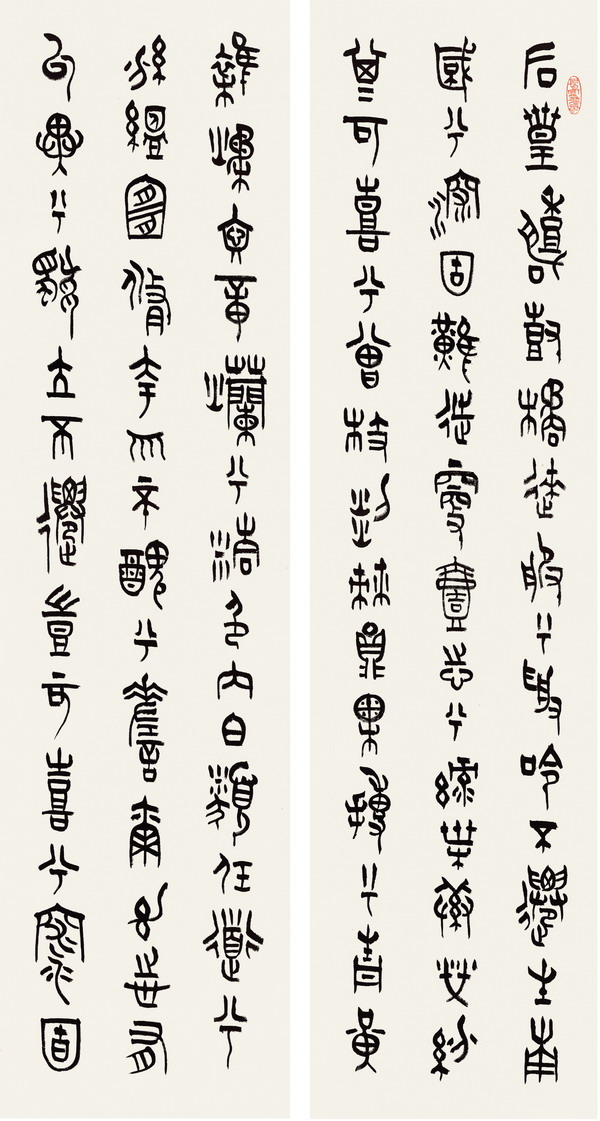 后皇嘉樹橘徠服兮受命不遷生南
國兮深固難徙更壹志兮綠葉素榮紛
其可喜兮曾枝剡棘圓果摶兮青黃
雜糅文章爛兮精色內白類任道兮
紛緼宜脩姱而不醜兮嗟爾幼志有
以異兮獨立不遷豈可喜兮深固